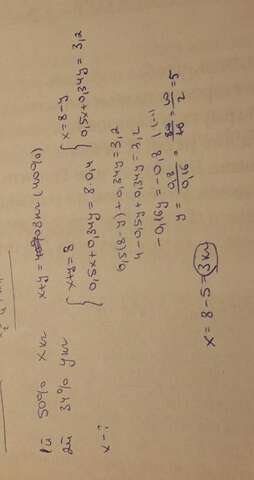 1й 50% x кг
2й 34% y кг
x+y = 8кг (40%)
x - ?
{ x+y = 8
0,5x+0,34y = 8·0,4
{ x = 8-y
0,5x+0,34y = 3,2
0,5(8-y)+0,34y = 3,2
4-0,5y+0,34y = 3,2
-0,16y = -0,8 | (-1)
y = 0,8/0,16 = 80/16 = 10/2 = 5
x = 8-5 = 3 кг